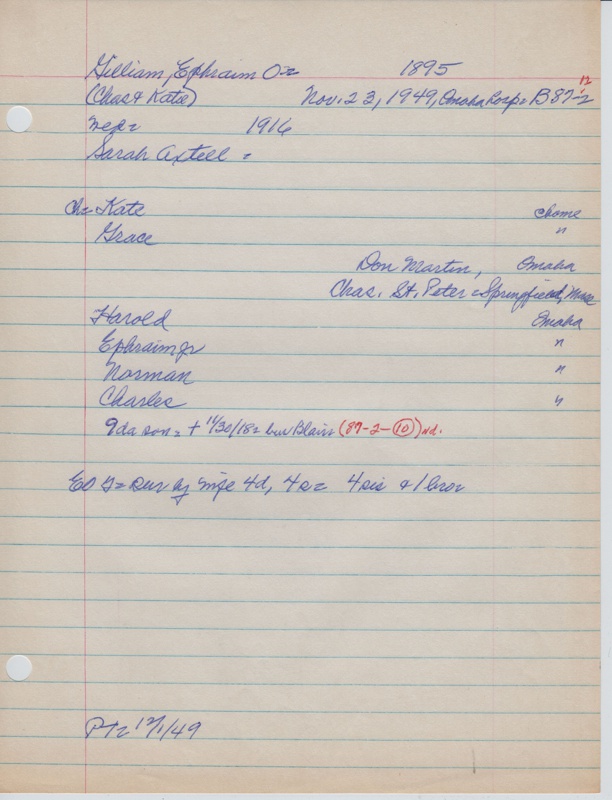 Gilliam, Ephraim O= 1895
(Chas & Katie) Nov. 23, 1949, Omaha Hosp= B 87-2 12
Wed= 1916
Sarah Axtell =
Ch= Kate @home
Grace "
Don Martin, Omaha
Chas. St. Peter = Springfield,
Harold Omaha
Ephraim Jr "
Norman "
Charles "
9da son= + 11/30/18= bur Blair (87-2-10) Nd.
EO G= sur by wife 4d, 4s= 4sis & 1 bro=
PT= 12/1/49